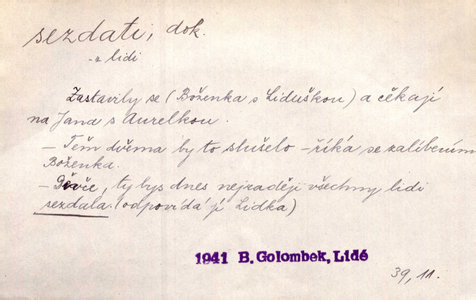 sezdati, dok.
- z lidi
Zastavily se (Boženka s Liduškou) a čekají
na Jana s Aurelkou.
- Těm dvěma by to slušelo - říká se zalíbením
Boženka.
- Děvče, ty bys dnes nejraději všechny lidi
sezdala. (odpovídá jí Lidka)
1941 B. Golombek, Lidé
39, 11.